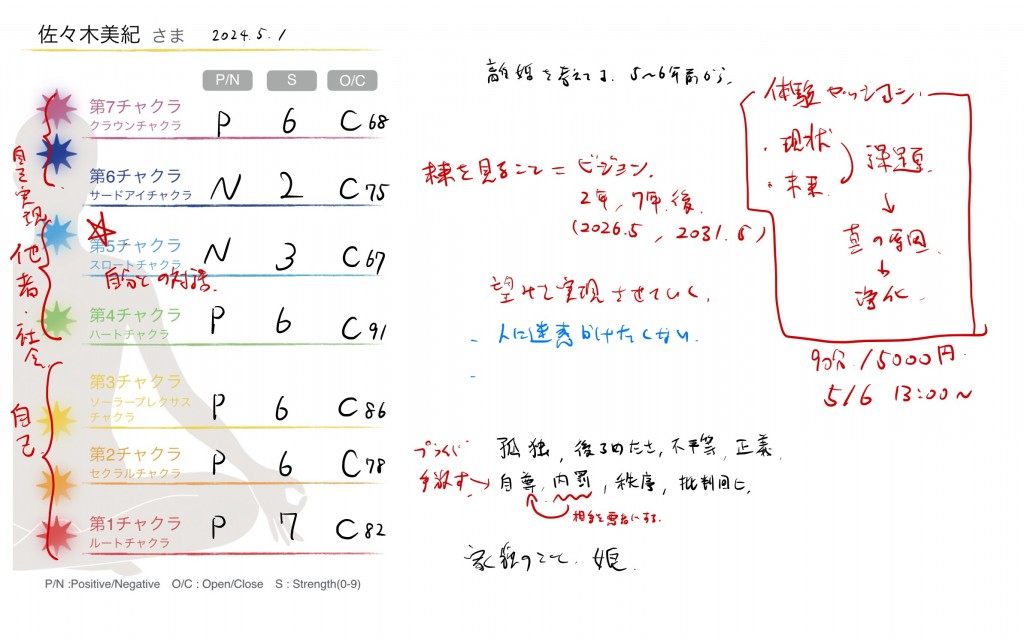 佐々木美紀 さま 2024.5.1
P/N S O/C
第7チャクラ
クラウンチャクラ P 6 C 68
第6チャクラ
サードアイチャクラ N 2 C 75
第5チャクラ
スロートチャクラ N 3 C 67
自分との対話.
第4チャクラ
ハートチャクラ P 6 C 91
第3チャクラ
ソーラープレクサス
チャクラ P 6 C 86
第2チャクラ
セクラルチャクラ P 6 C 78
第1チャクラ
ルートチャクラ P 7 C 82
自己実現
他者・社会
自己
P/N :Positive/Negative O/C : Open/Close S : Strength(0-9)
離婚を考えて 5〜6年前から.
を見ること = ビジョン.
2年, 7年後.
(2026.5 , 2031.5)
実現させていく.
人に迷惑かけたくない
孤独, 後ろめたさ, 不平等, 正義.
手放す→ 自尊, 内罰, 秩序, 批判回避.
相手を悪者にする.
家族のこと.
体験セッション
・現状
・未来
課題
↓
真の原因
↓
浄化
90分 15000円.
5/6 13:00〜